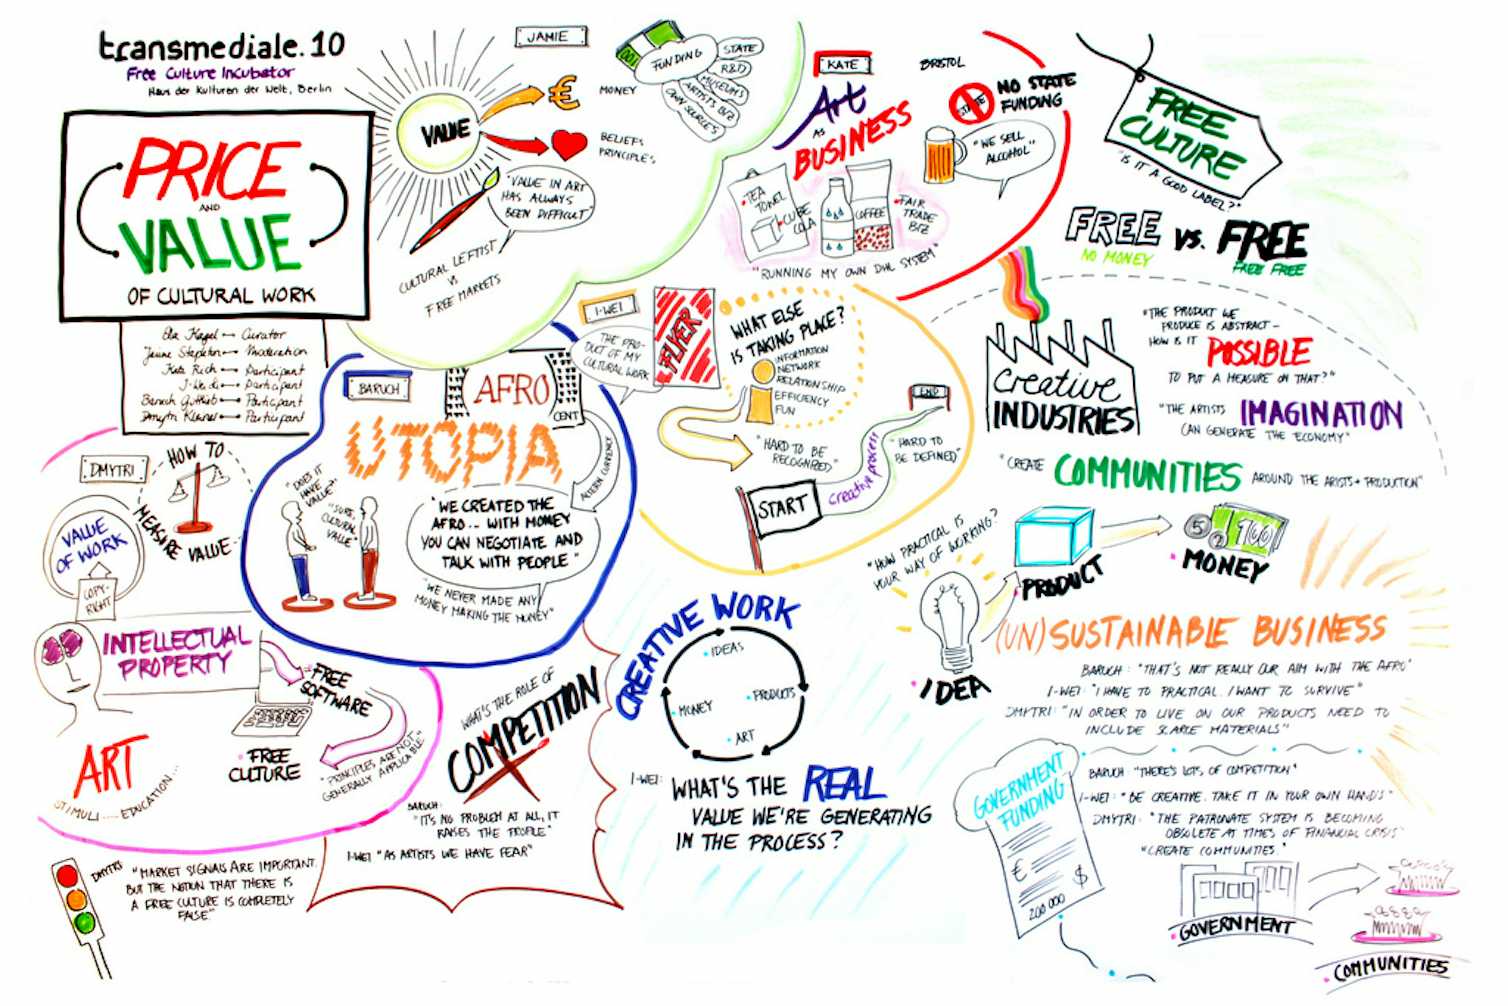 transmediale.10
Free Culture Incubator
Haus der Kulturen der Welt, Berlin
PRICE
AND
VALUE
OF CULTURAL WORK
Curator
Jaime Stapleton Moderation
Kate Rich Participant
Participant
Baruch Gottlieb Participant
Dmytri Kleiner Participant
JAMIE
VALUE
€
MONEY
BELIEFS
PRINCIPLES
100
FUNDING
STATE
R&D
MUSEUMS
ARTISTS BIZ
OWN SOURCES
"VALUE IN ART
HAS ALWAYS
BEEN DIFFICULT"
CULTURAL LEFTIST
VS
FREE MARKETS
KATE
BRISTOL
Art
AS
BUSINESS
STATE
NO STATE
FUNDING
"WE SELL
ALCOHOL"
TEA
TOWEL
CUBE
COLA
COFFEE
FAIR
TRADE
BIZ
"RUNNING MY OWN DHL SYSTEM"
FREE
CULTURE
"IS IT A GOOD LABEL?"
FREE VS. FREE
NO MONEY
FREE FREE
BARUCH
AFRO
CENT
UTOPIA
ALTERN CURRENCY
"DOES IT
HAVE
VALUE?"
"SURE,
CULTURAL
VALUE"
"WE CREATED THE
AFRO.. WITH MONEY
YOU CAN NEGOTIATE AND
TALK WITH PEOPLE"
"WE NEVER MADE ANY
MONEY MAKING THE MONEY"
I-WEI
THE PRO-
DUCT OF MY
CULTURAL WORK
FLYER
WHAT ELSE
IS TAKING PLACE?
INFORMATION
NETWORK
RELATIONSHIP
EFFICIENCY
FUN
"HARD TO BE
RECOGNIZED"
END
creative process
"HARD TO
BE DEFINED"
START
creative
INDUSTRIES
"THE PRODUCT WE
PRODUCE IS ABSTRACT –
HOW IS IT POSSIBLE
TO PUT A MEASURE ON THAT?"
"THE ARTISTS IMAGINATION
CAN GENERATE THE ECONOMY"
"CREATE COMMUNITIES AROUND THE ARISTS + PRODUCTION"
DMYTRI
HOW TO
MEASURE VALUE
VALUE
OF WORK
COPY-
RIGHT
INTELLECTUAL
PROPERTY
FREE
SOFTWARE
FREE
CULTURE
"PRINCIPLES ARE NOT
GENERALLY APPLICABLE"
ART
STIMULI .... EDUCATION...
DMYTRI
"MARKET SIGNALS ARE IMPORTANT.
BUT THE NOTION THAT THERE IS
A FREE CULTURE IS COMPLETELY
FALSE"
WHAT'S THE ROLE OF
COMPETITION
BARUCH:
"IT'S NO PROBLEM AT ALL, IT
RAISES THE PROFILE"
I-WEI "AS ARTISTS WE HAVE FEAR"
CREATIVE WORK
IDEAS
PRODUCTS
ART
MONEY
I-WEI: WHAT'S THE REAL
VALUE WE'RE GENERATING
IN THE PROCESS?
"HOW PRACTICAL IS
YOUR WAY OF WORKING?"
IDEA
PRODUCT
MONEY
5 2 100
(UN)SUSTAINABLE BUSINESS
BARUCH: "THAT'S NOT REALLY OUR AIM WITH THE AFRO"
I-WEI: "I HAVE TO PRACTICAL. I WANT TO SURVIVE"
DMYTRI: "IN ORDER TO LIVE ON OUR PRODUCTS NEED TO
INCLUDE SCARCE MATERIALS"
GOVERNMENT
FUNDING
€
$
200 000
BARUCH: "THERE'S LOTS OF COMPETITION"
I-WEI: "BE CREATIVE. TAKE IT IN YOUR OWN HANDS"
DMYTRI: "THE PATRONATE SYSTEM IS BECOMING
OBSOLETE AT TIMES OF FINANCIAL CRISIS"
"CREATE COMMUNITIES."
GOVERNMENT
COMMUNITIES